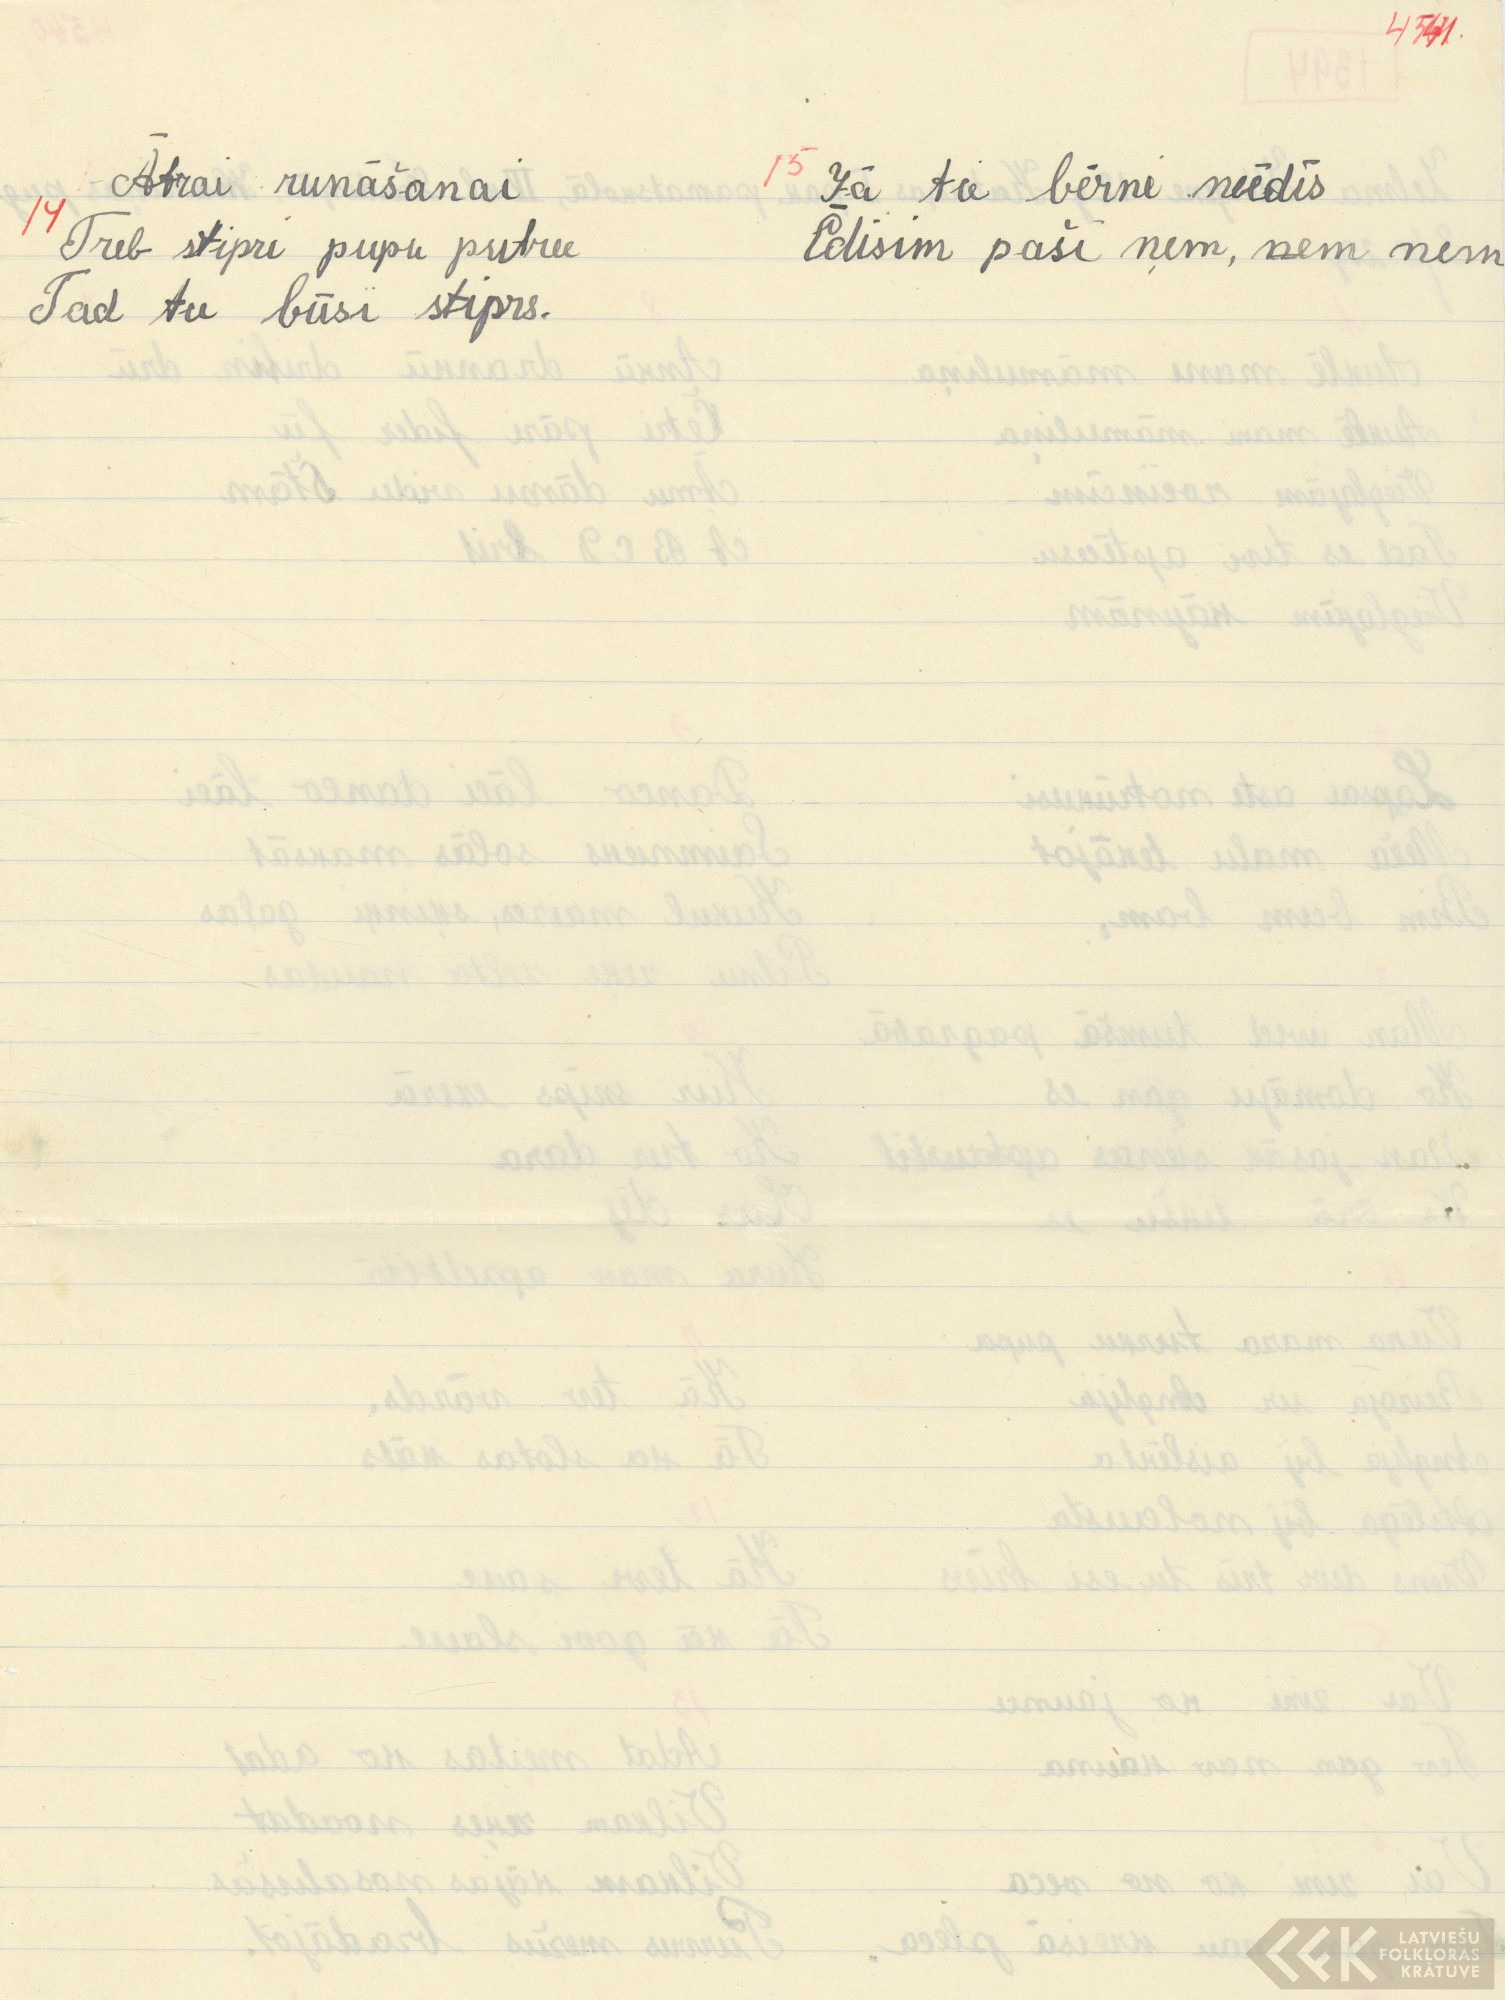 4541.
Ātrai runāšanai
14
Treb stipri pupu putru
Tad tu būsi stiprs.
15 Jā tu bērni neēdīs
Ēdīsim paši ņem, nem nem
LATVIEŠU
FOLKLORAS
KRĀTUVE